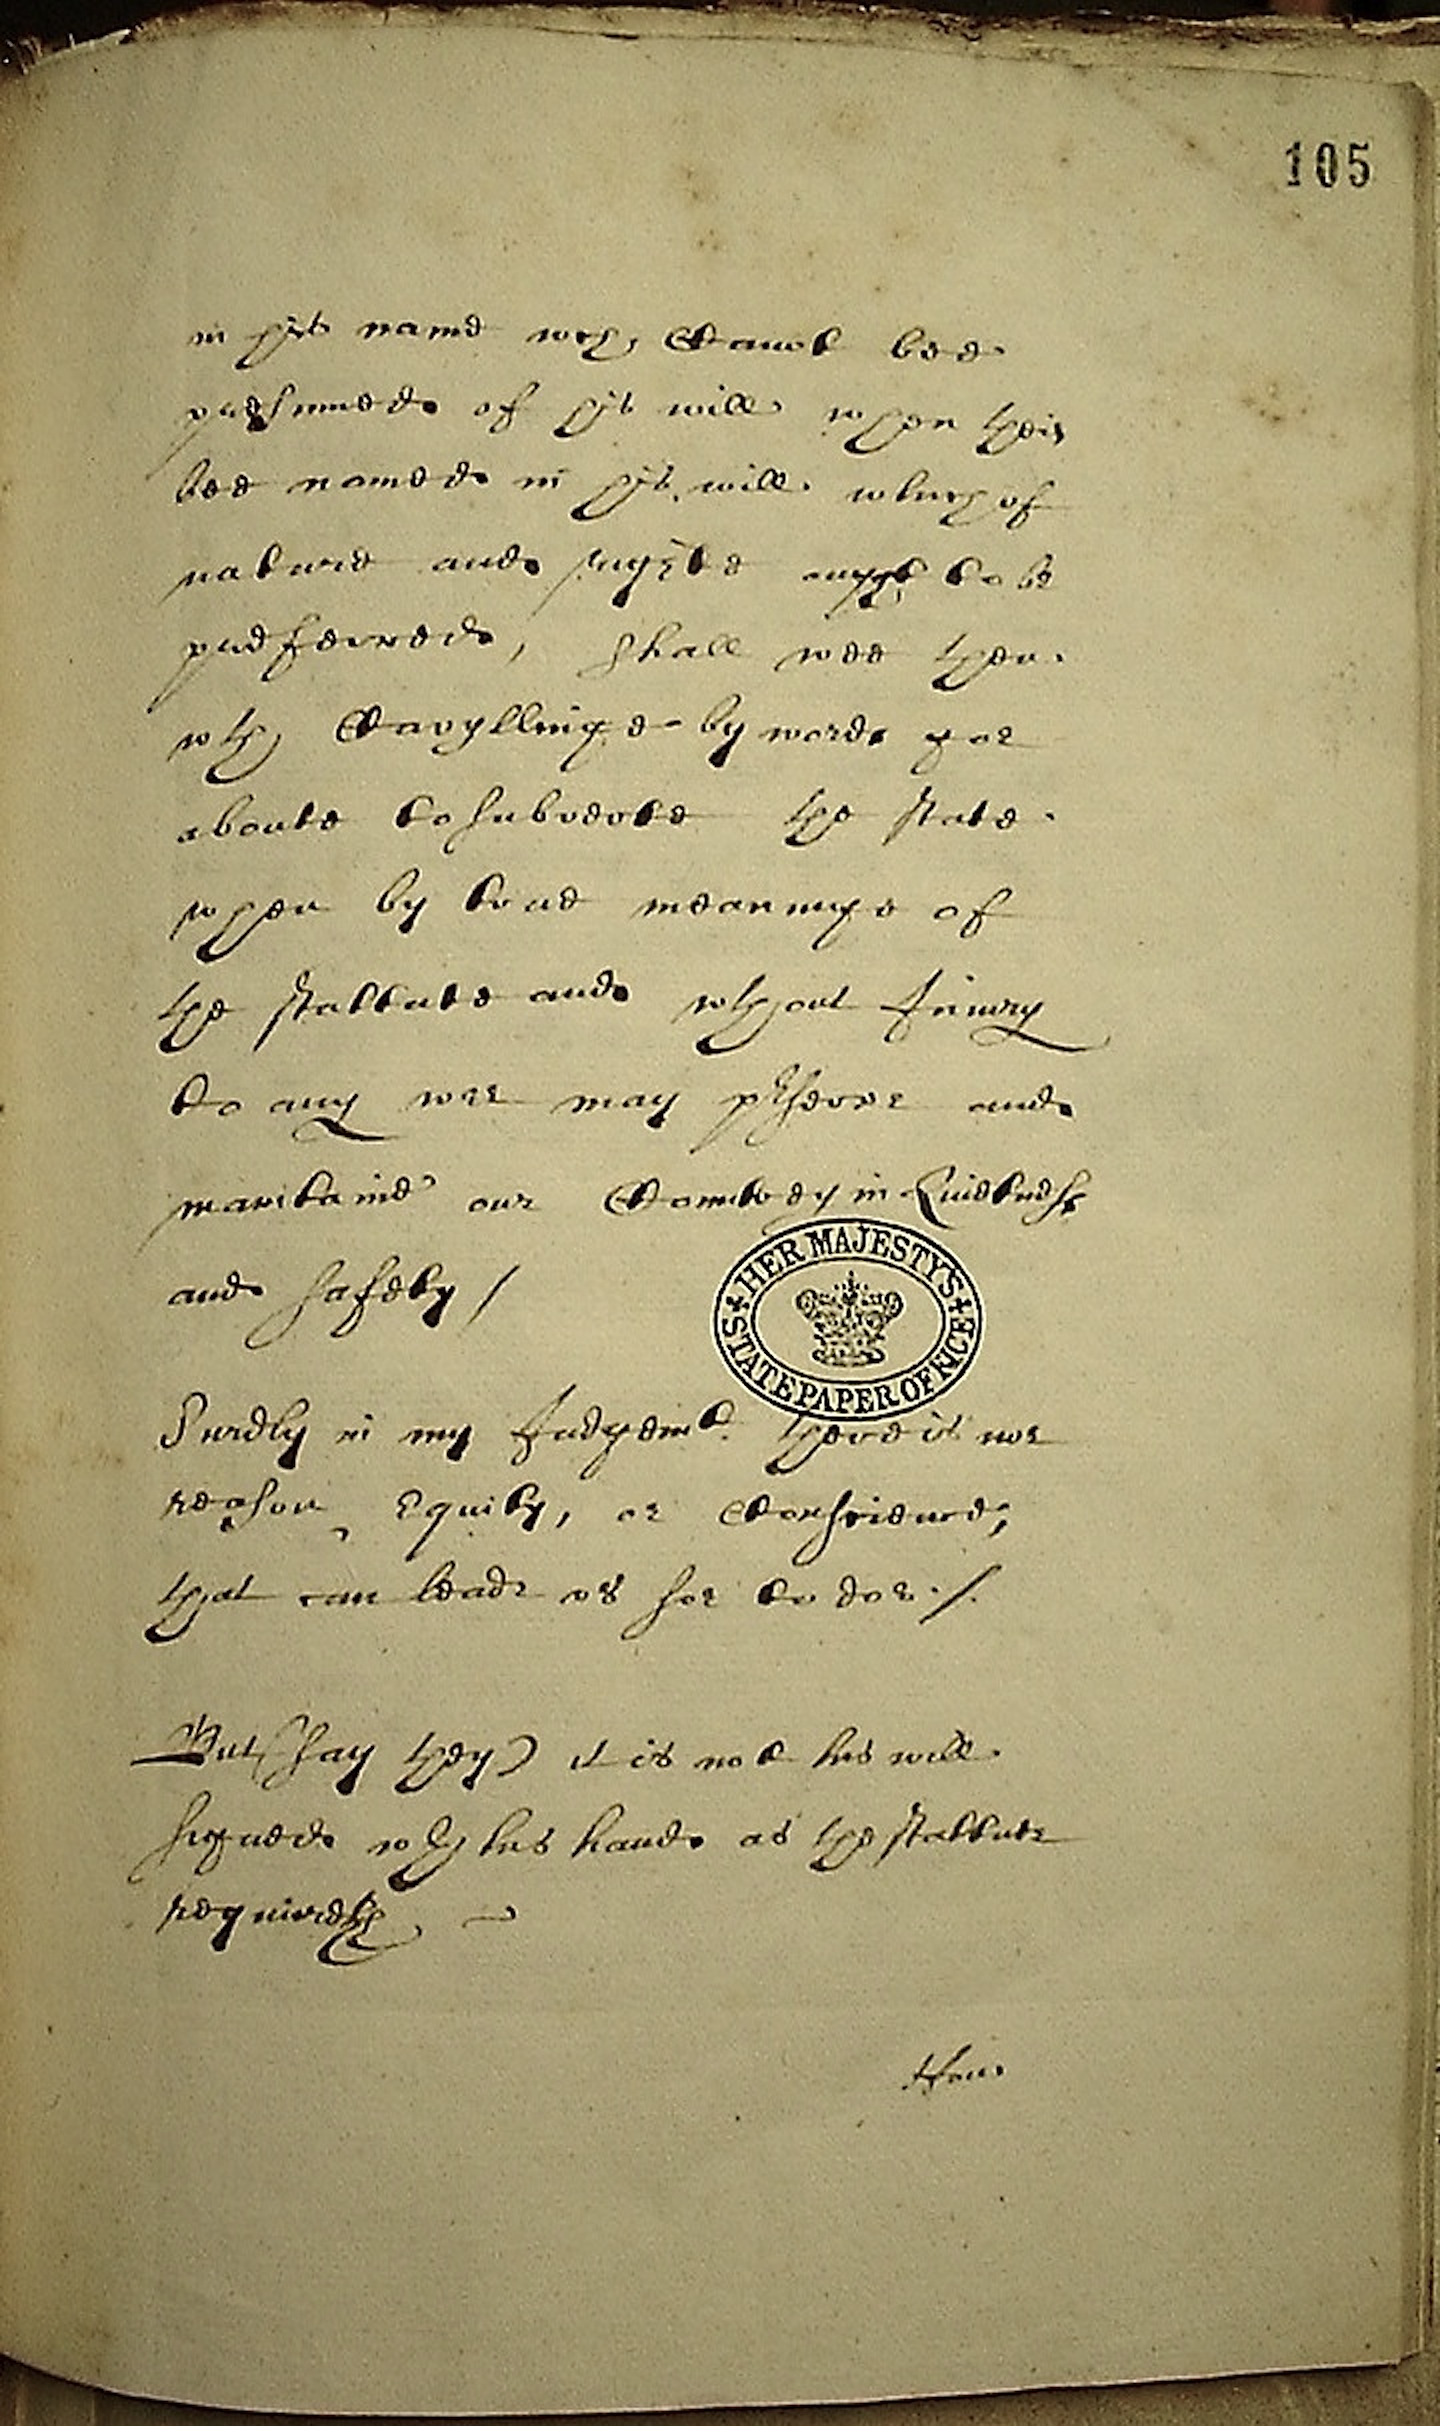 105
in his name wch Cannot bee
presumed of his will when their
bee named in his will which of
nature and righte ought to be
preferred, shall wee then
wth Cavyllinge by words goe
aboute to subverte the state
when by true meaninge of
the stattute and wthout Iniury
to any wee may pserve and
maintaine our Countrey in Quietness
and safety /
HER MAJESTY'S STATE PAPER OFFICE
Surely in my Iudgemt there is noe
reason Equity, or Conscience,
that can leade us soe to doe ./.
But (say they) it is not his will
signed wth his hand as the stattute
requireth
How